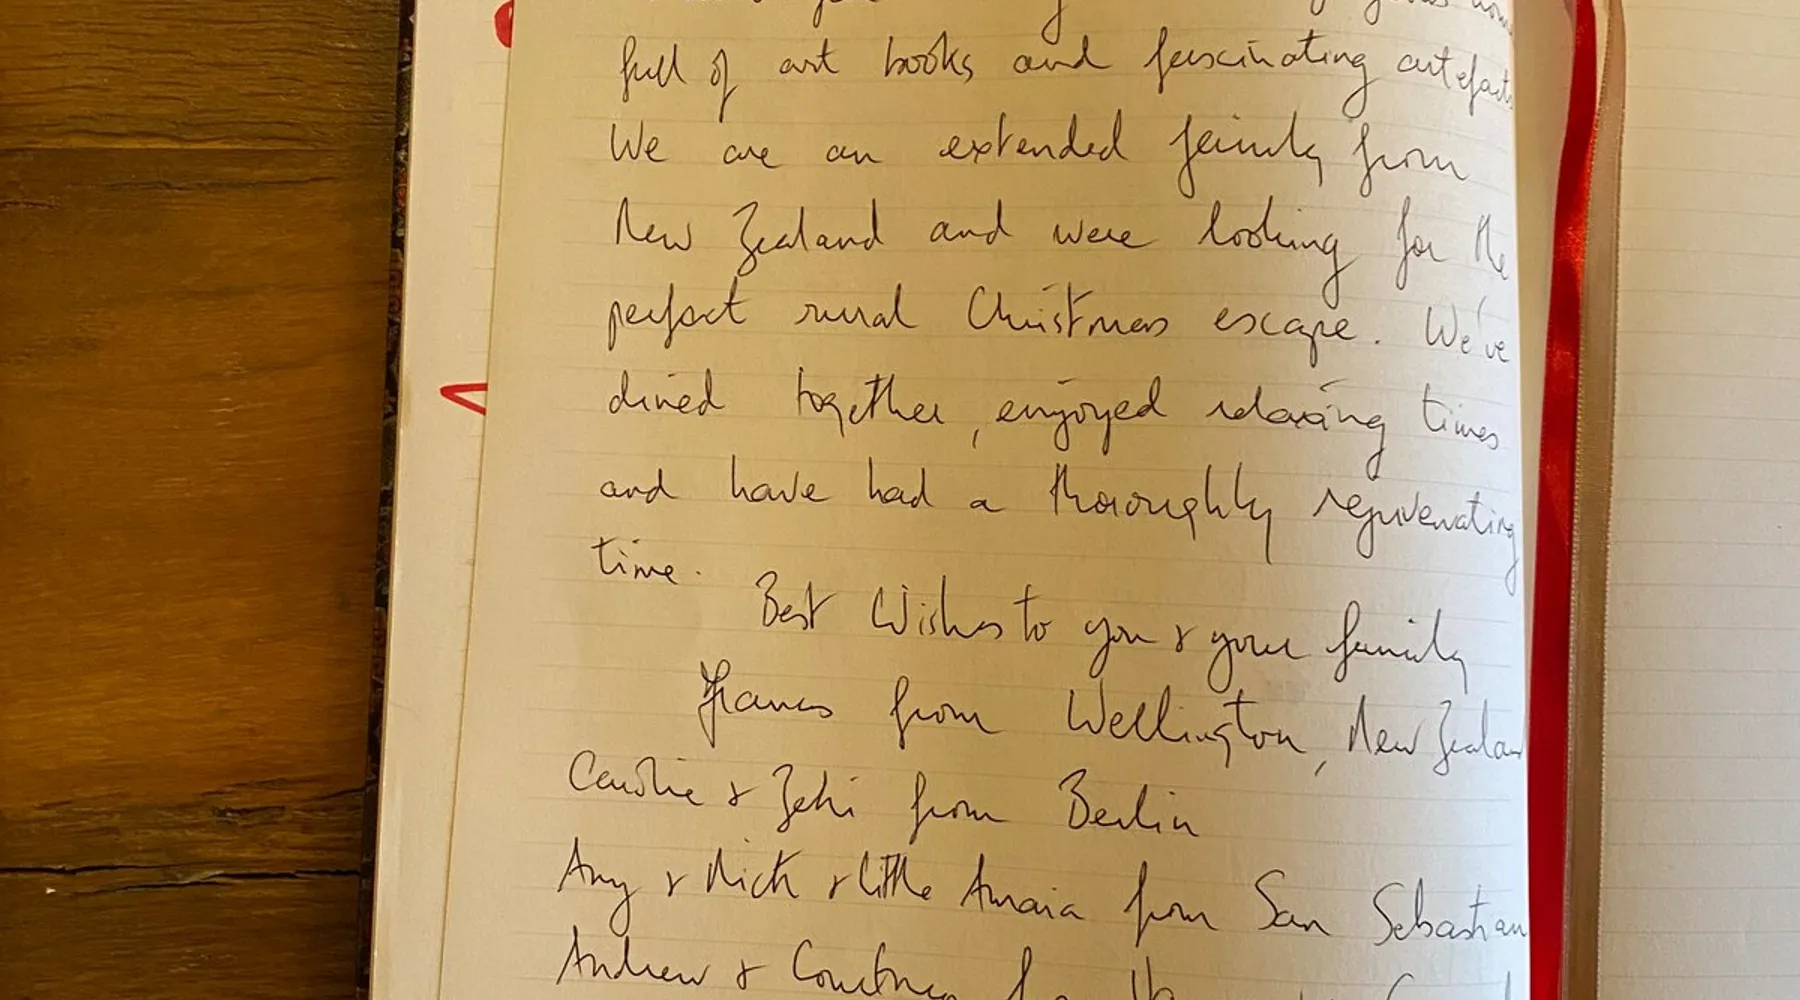 full of art books and fascinating artefacts
We are an extended family from
New Zealand and were looking for the
perfect rural Christmas escape. We've
dined together, enjoyed relaxing times
and have had a thoroughly rejuvenating
time.
Best Wishes to you & your family
Frances from Wellington, New Zealand
Caroline & Zeki from Berlin
Amy & Nick & little Amaia from San Sebastian
Andrew & Courtney